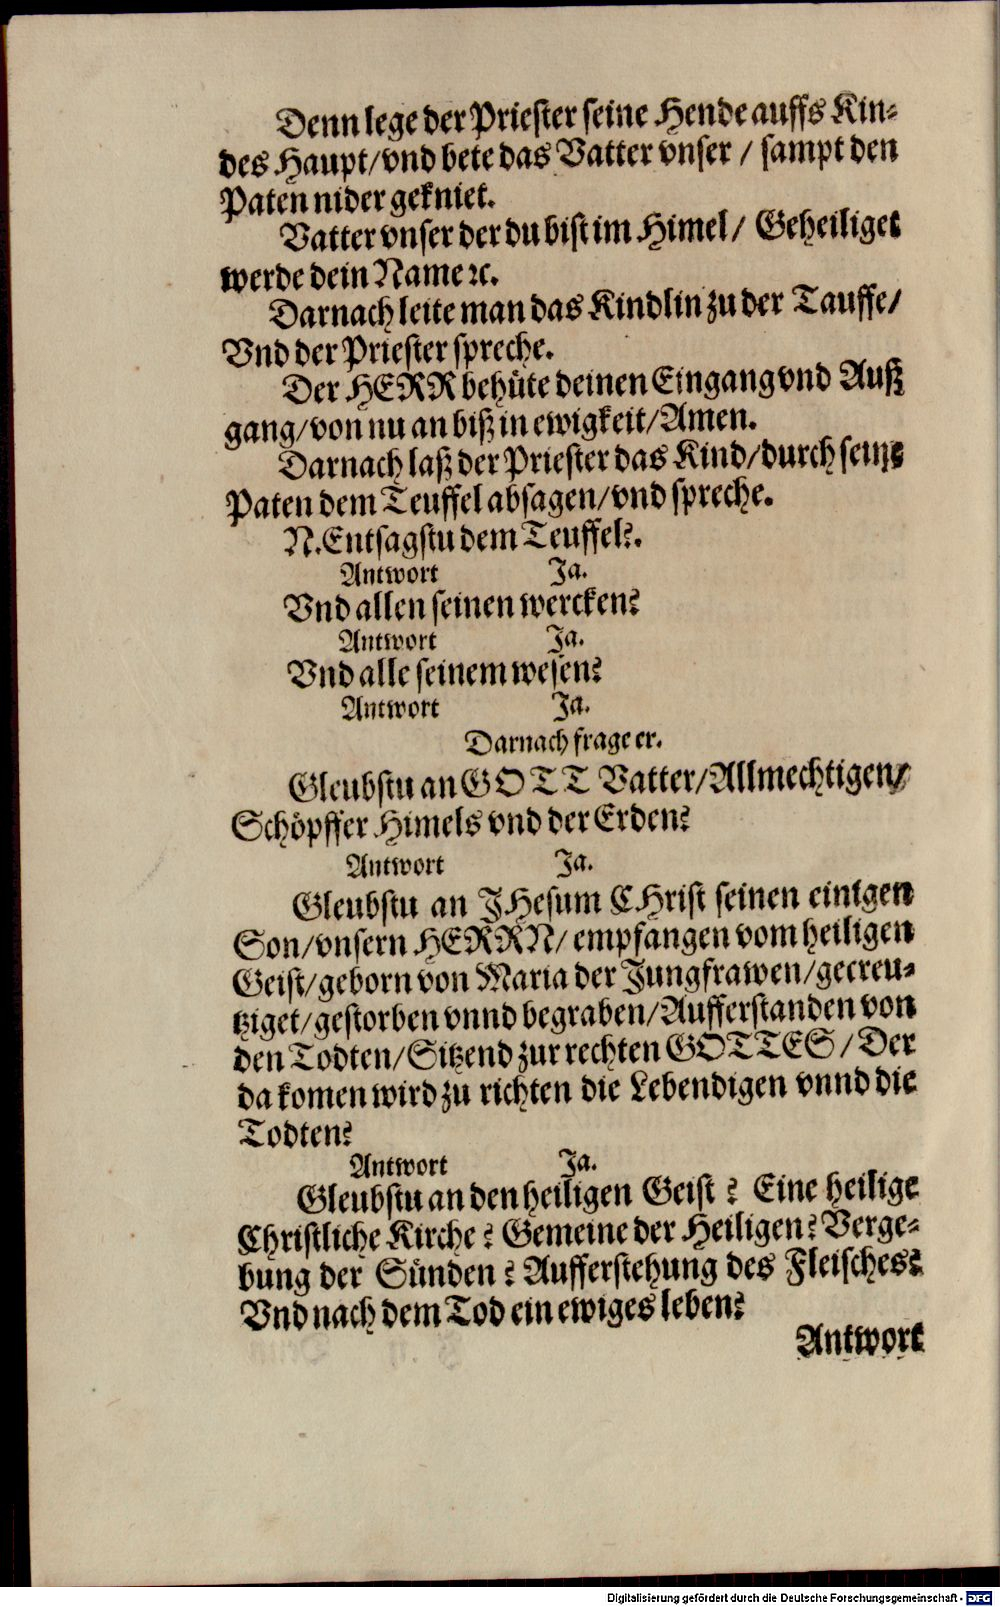 Denn lege der Priester seine Hende auffs Kin-
des Haupt/vnd bete das Vatter vnser / sampt den
Paten nider gekniet.
Vatter vnser der du bist im Himel/ Geheiliget
werde dein Name ꝛc.
Darnach leite man das Kindlin zu der Tauffe/
Vnd der Priester spreche.
Der HERR behüte deinen Eingang vnd Auß
gang/von nu an biß in ewigkeit/Amen.
Darnach laß der Priester das Kind/durch seine
Paten dem Teuffel absagen/vnd spreche.
N. Entsagstu dem Teuffel?.
Antwort Ja.
Vnd allen seinen wercken?
Antwort Ja.
Vnd alle seinem wesen?
Antwort Ja.
Darnach frage er.
Gleubstu an GOTT Vatter/Allmechtigen/
Schöpffer Himels vnd der Erden?
Antwort Ja.
Gleubstu an JHesum CHrist seinen einigen
Son/vnsern HERRN/ empfangen vom heiligen
Geist/geborn von Maria der Jungfrawen/gecreu-
tziget/gestorben vnnd begraben/Aufferstanden von
den Todten/Sitzend zur rechten GOTTES/Der
da komen wird zu richten die Lebendigen vnnd die
Todten?
Antwort Ja.
Gleubstu an den heiligen Geist? Eine heilige
Christliche Kirche? Gemeine der Heiligen? Verge-
bung der Sünden? Aufferstehung des Fleisches?
Vnd nach dem Tod ein ewiges leben?
Antwort
Digitalisierung gefördert durch die Deutsche Forschungsgemeinschaft - DFG